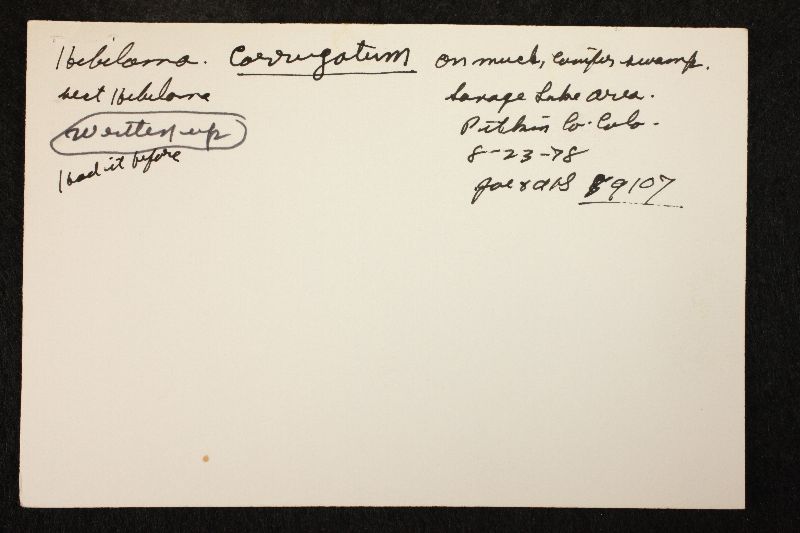 Hebeloma. Corrugatum
sect Hebeloma
Written up
I had it before
on muck, conifer swamp.
Savage Lake area.
Pitkin Co. Colo-
8-23-78
89107